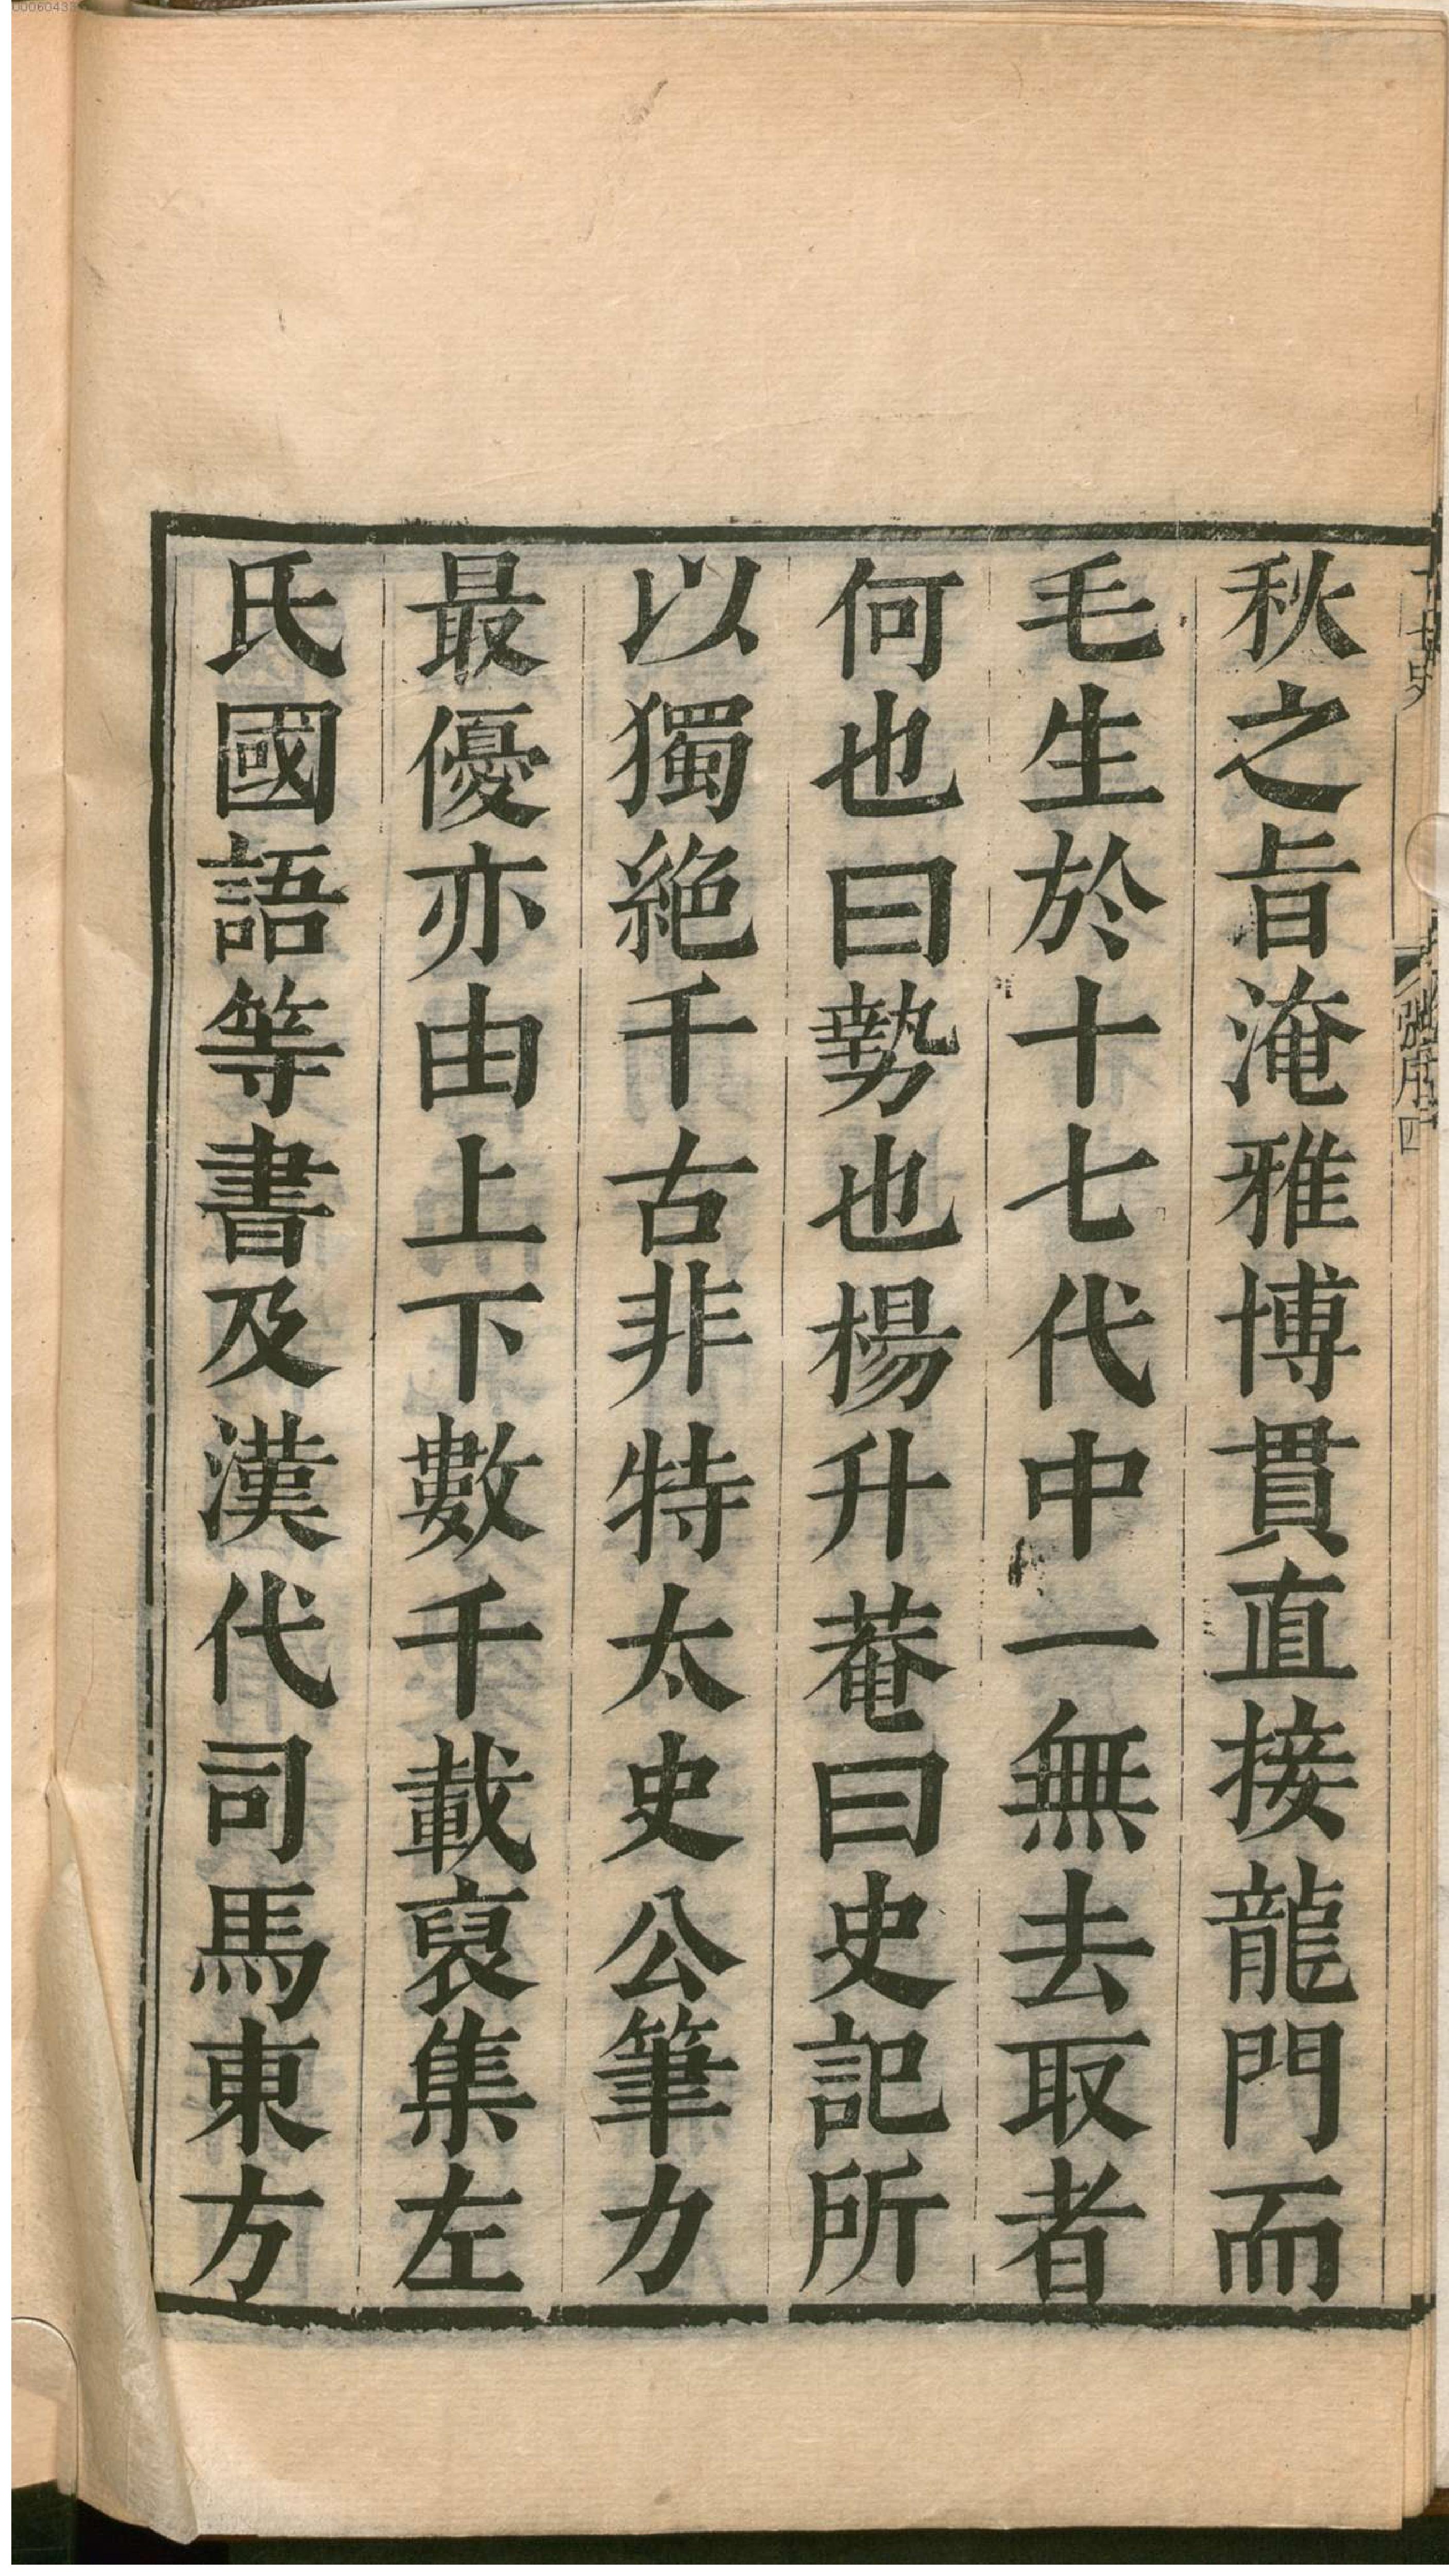 秋之旨淹雅博貫直接龍門而
毛生於十七代中一無去取者
何也曰勢也楊升菴曰史記所
以獨絶千古非特太史公筆力
最優亦由上下數千載裒集左
氏國語等書及漢代司馬東方
十七史
張序
四